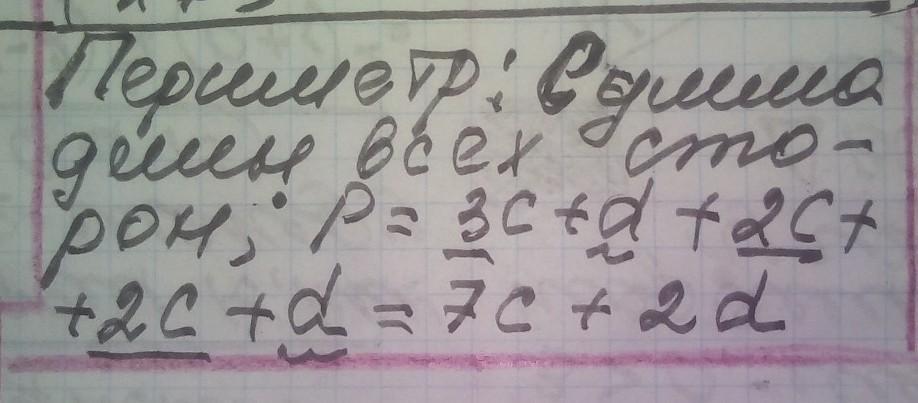 Периметр: Сумма
длин всех сто-
рон; P = 3c + d + 2c +
+ 2c + d = 7c + 2d